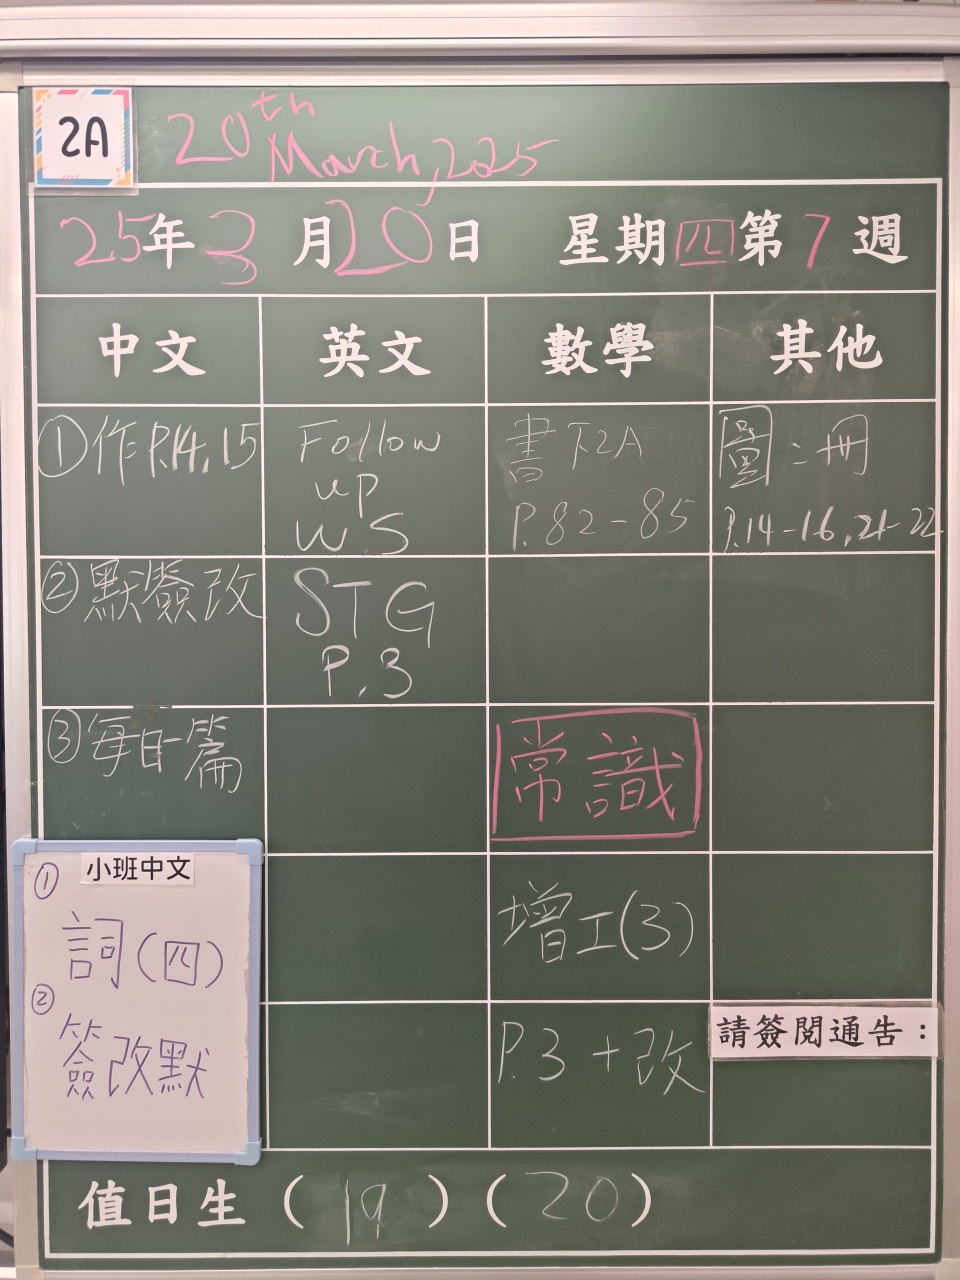 2A
20th March, 2025
25年3月20日 星期四第7週
中文 英文 數學 其他
①作P.14, 15
Follow up W.S
書下2A P.82-85
圖二冊 P.14-16, 21-22
②默簽改
STG P.3
③每日一篇
常識
小班中文
①
詞(四)
②
簽改默
增工(3)
P.3 + 改
請簽閱通告：
值日生 (19) (20)